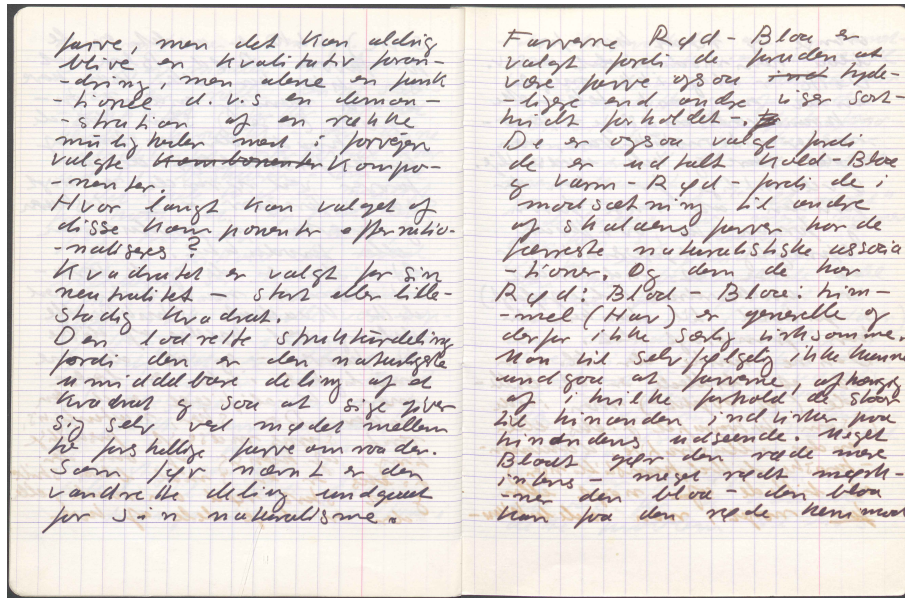 farve, men det kan aldrig
blive en kvalitativ foran-
-dring, men alene en funk
-tionel d.v.s en demon-
-stration af en række
muligheder med i forvejen
valgte Komponenter Kompo-
-nenter.
Hvor langt kan valget af
disse komponenter efterratio-
-naliseres?
Kvadratet er valgt for sin
neutralitet - stort eller lille-
stadig kvadrat.
Den lodrette strukturdeling
fordi den er den naturligste
umiddelbare deling af et
kvadrat og saa at sige giver
sig selv ved mødet mellem
to forskellige farveomraader.
Som før nævnt er den
vandrette deling undgaaet
for sin naturalisme.
Farverne Rød - Blaa er
valgt fordi de foruden at
være farve ogsaa tyde-
-ligere end andre siger sort-
hvidt forholdet-.
De er ogsaa valgt fordi
de er udtalt Kold - Blaa
og varm - Rød - fordi de i
modsætning til andre
af skalaens farver har de
færreste naturalistiske associa
-tioner. Og dem de har
Rød: Blod - Blaa: him-
-mel (Hav) er generelle og
derfor ikke særlig virksomme.
Man vil selvfølgelig ikke kunne
undgaa at farverne, afhængig
af i hvilke forhold de staar
til hinanden indvirker paa
hinandens udseende. Meget
Blaat gør den røde mere
intens - meget rødt mørk-
-ner den blaa - den blaa
kan paa den røde